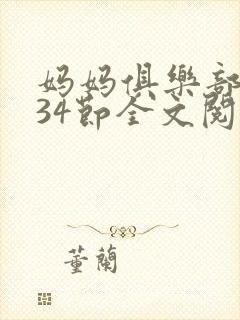 妈妈俱樂部
34節全文閱
董蘭